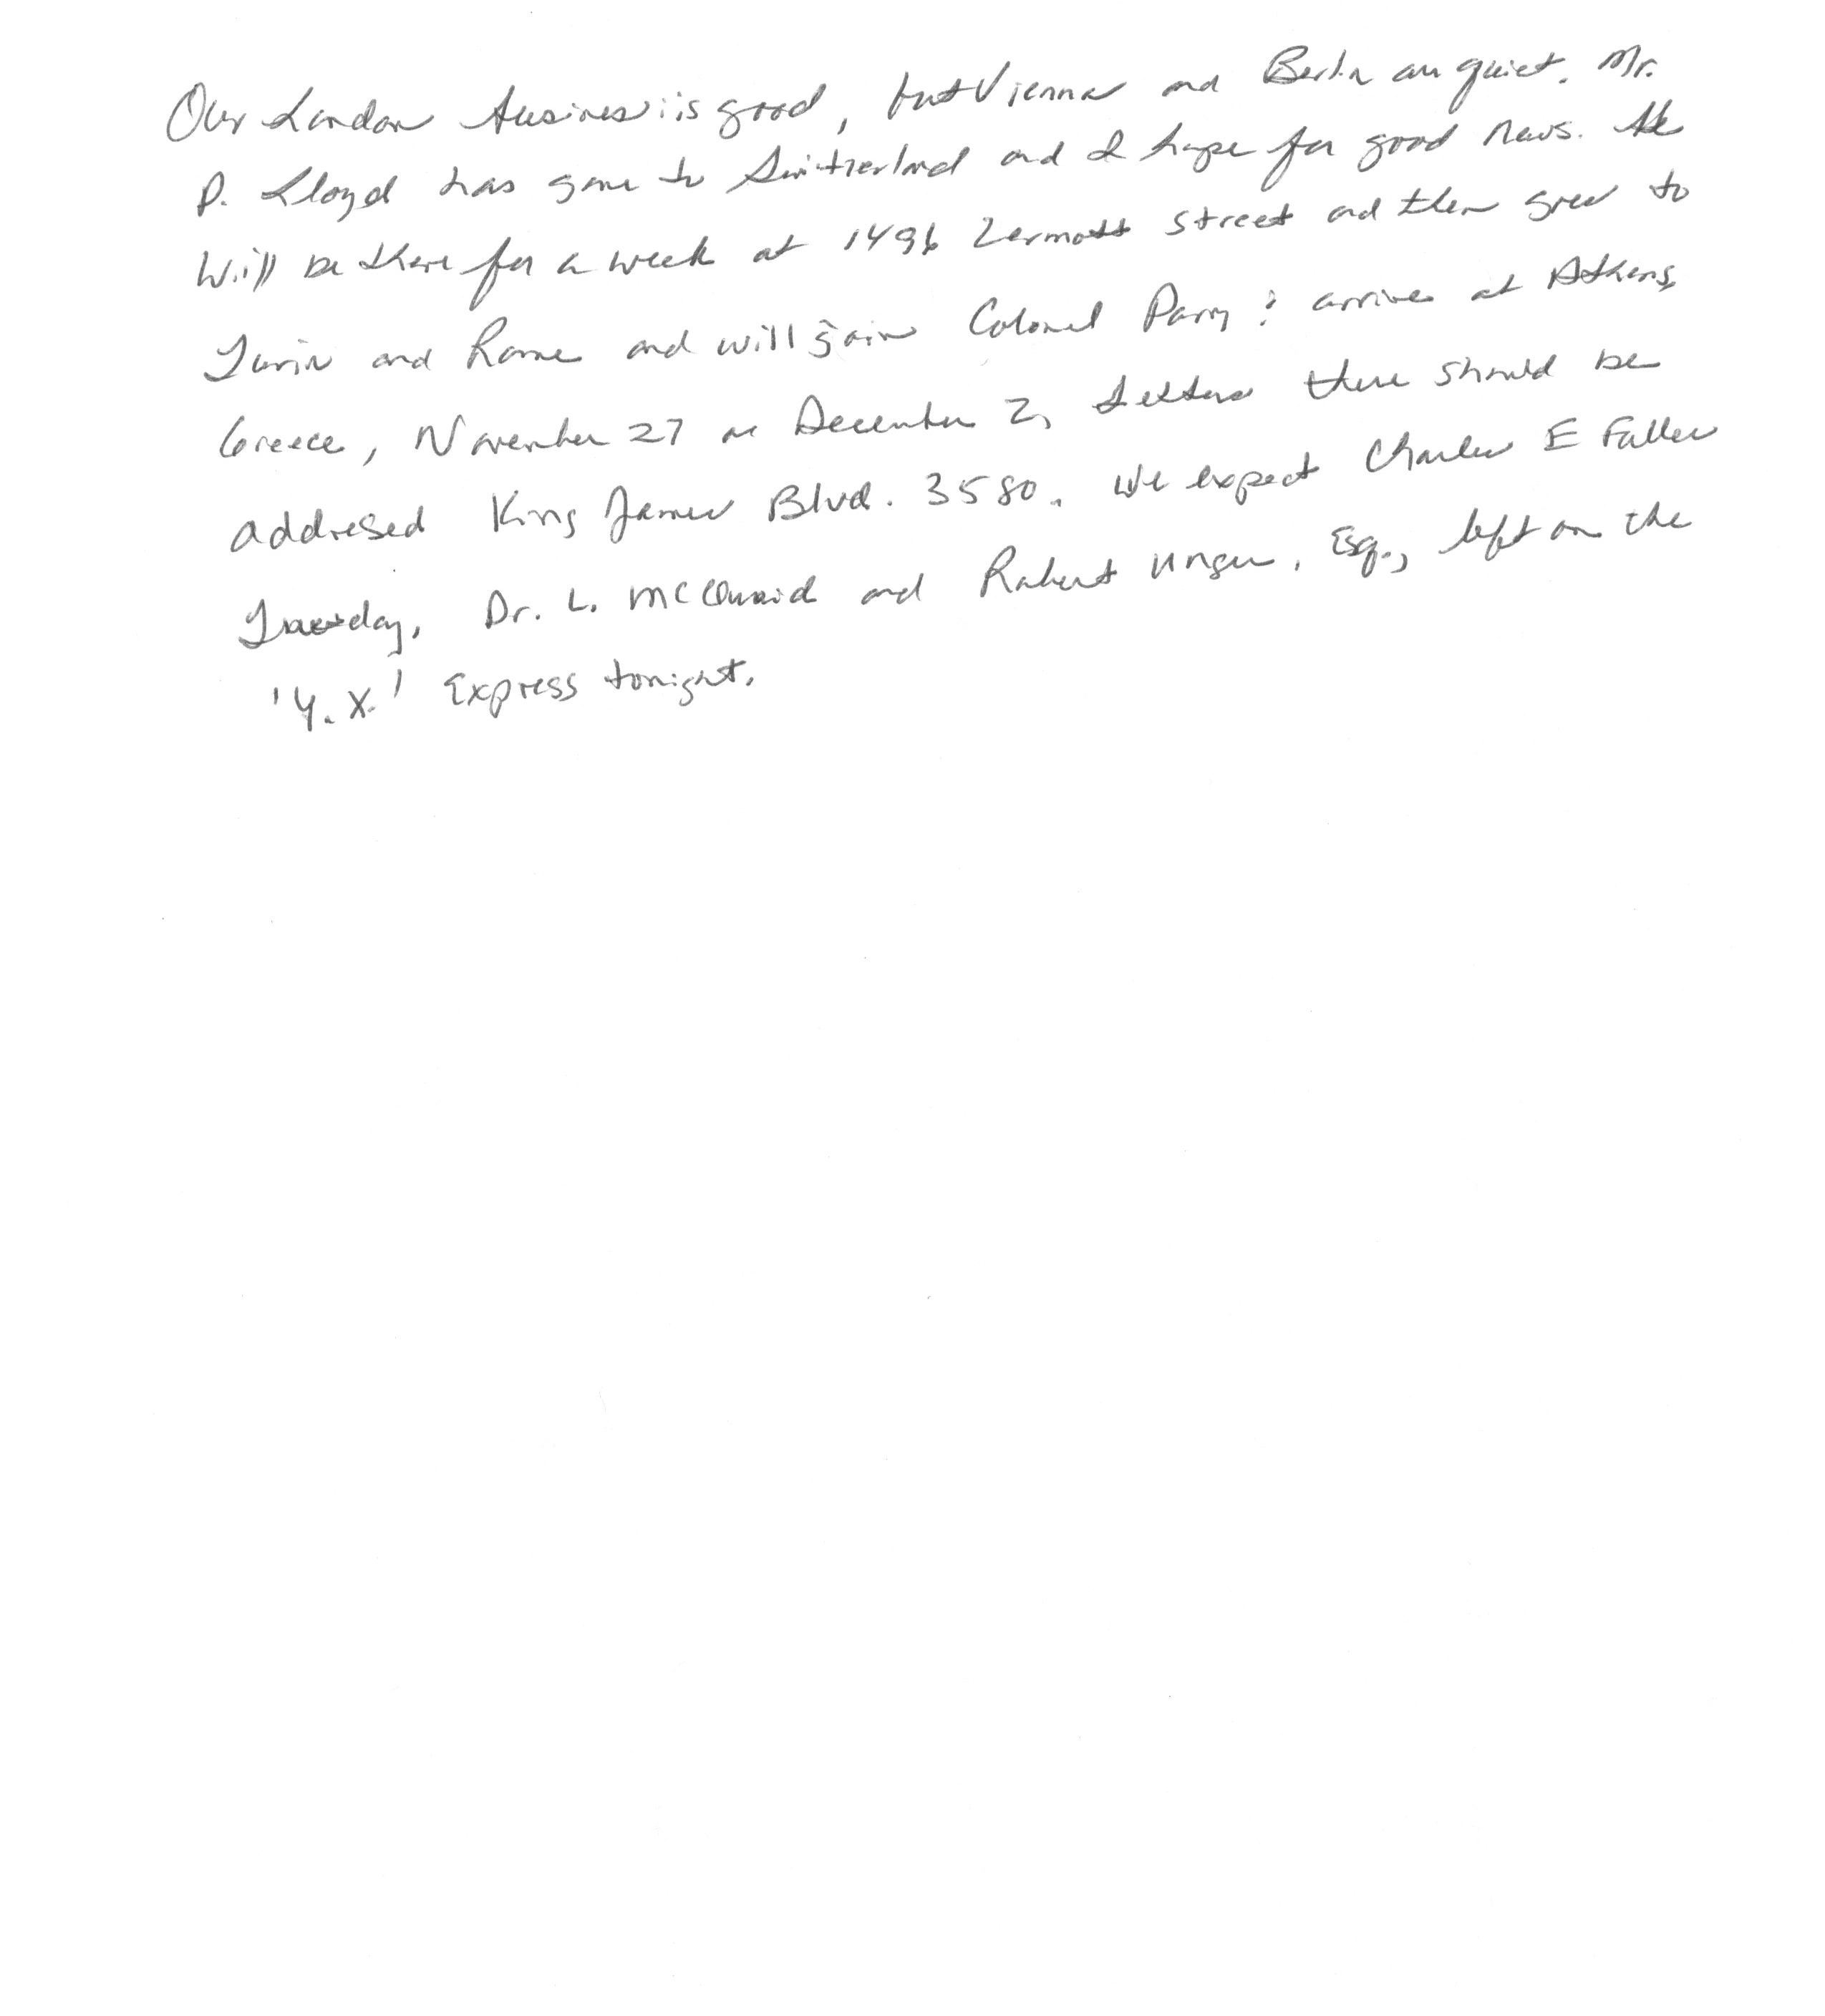 Our London business is good, but Vienna and Berlin are quiet. Mr.
D. Lloyd has gone to Switzerland and I hope for good news. He
will be there for a week at 1496 Zermott Street and then goes to
Turin and Rome and will join Colonel Parry & arrive at Athens,
Greece, November 27 or December 2, Letters there should be
addresed King James Blvd. 3580. We expect Charles E Fuller
Tuesday, Dr. L. McQuaid and Robert Unger, Esq., left on the
'Y. X.' Express tonight.